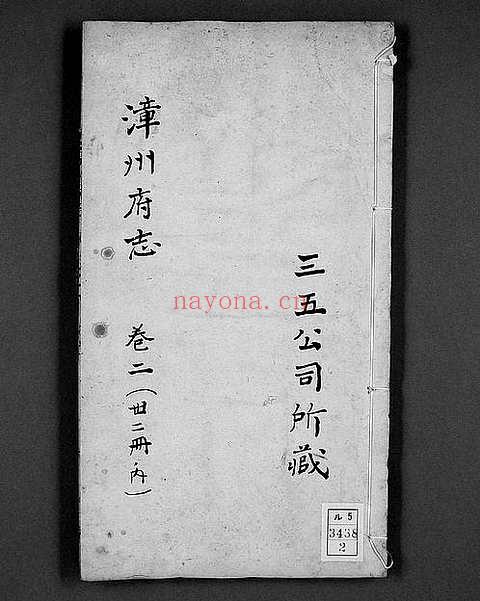 三五公司所藏
漳州府志 卷二（廿二册内）
nayona.cn
ル5
3438
2